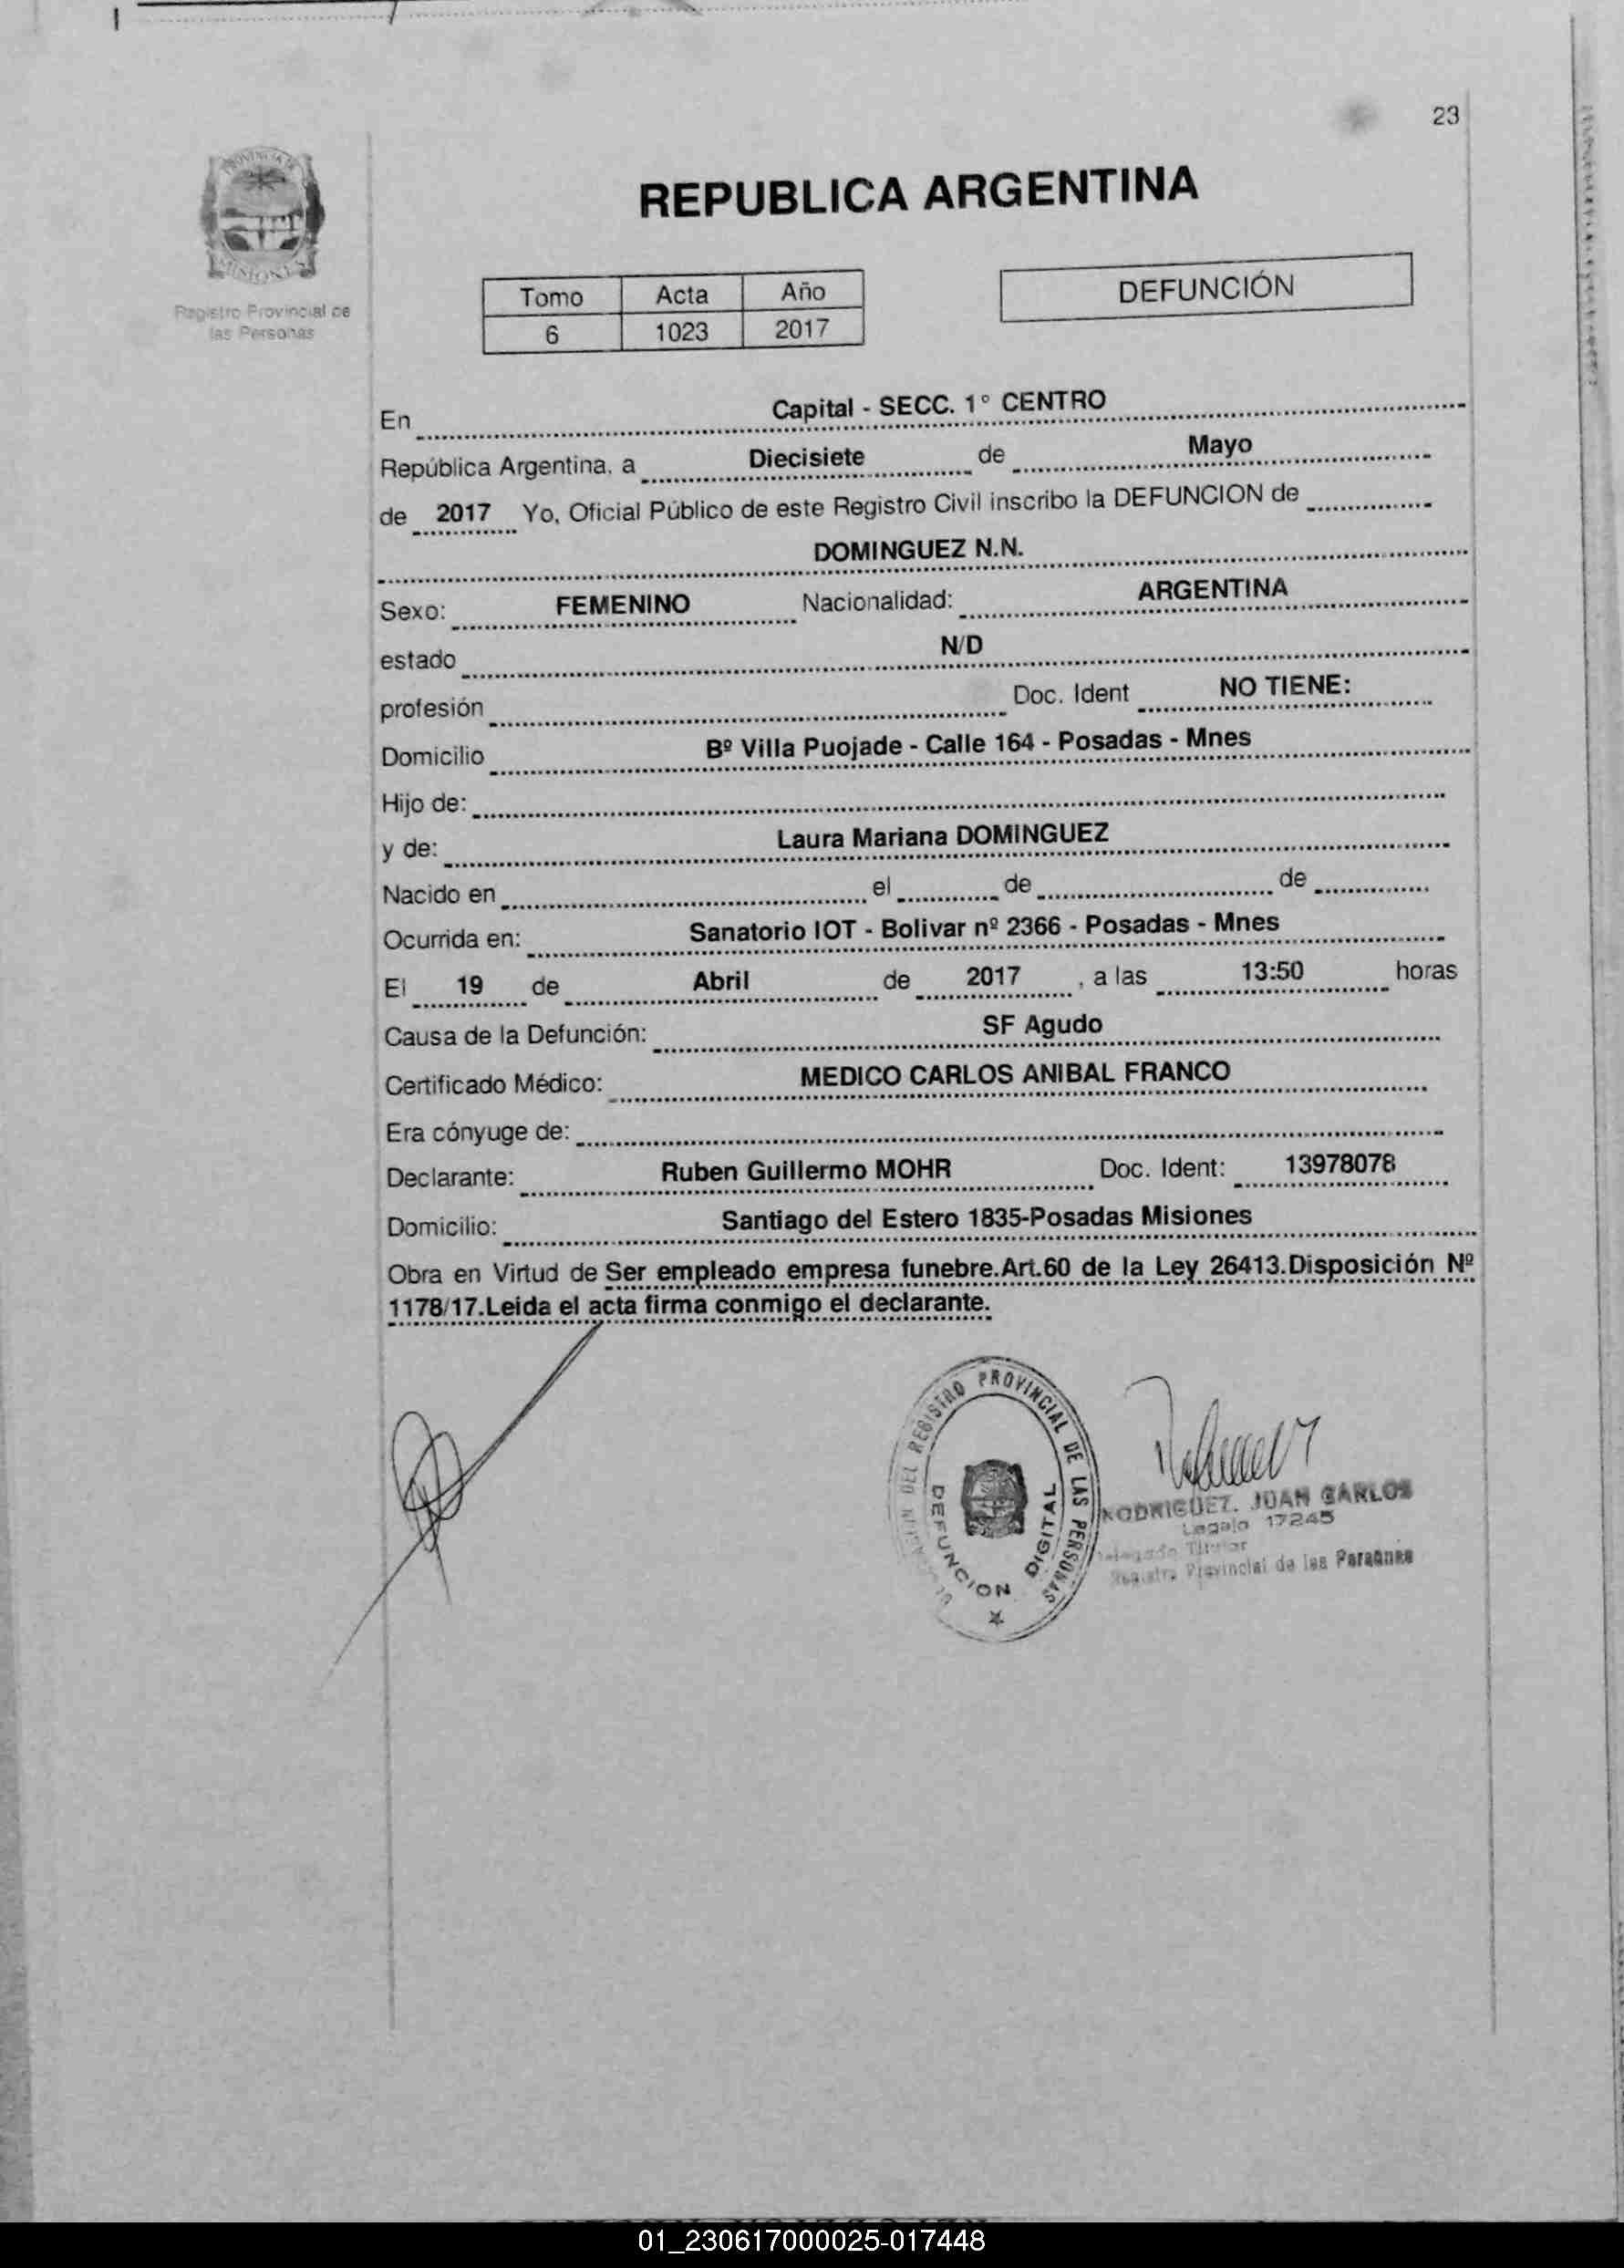 23
PROVINCIA DE
MISIONES
Registro Provincial de
las Personas
REPUBLICA ARGENTINA
Tomo Acta Año
6 1023 2017
DEFUNCIÓN
En Capital - SECC. 1° CENTRO
República Argentina, a Diecisiete de Mayo
de 2017 Yo, Oficial Público de este Registro Civil inscribo la DEFUNCION de
DOMINGUEZ N.N.
Sexo: FEMENINO Nacionalidad: ARGENTINA
estado N/D
profesión Doc. Ident NO TIENE:
Domicilio Bº Villa Puojade - Calle 164 - Posadas - Mnes
Hijo de:
y de: Laura Mariana DOMINGUEZ
Nacido en el de de
Ocurrida en: Sanatorio IOT - Bolivar nº 2366 - Posadas - Mnes
El 19 de Abril de 2017 , a las 13:50 horas
Causa de la Defunción: SF Agudo
Certificado Médico: MEDICO CARLOS ANIBAL FRANCO
Era cónyuge de:
Declarante: Ruben Guillermo MOHR Doc. Ident: 13978078
Domicilio: Santiago del Estero 1835-Posadas Misiones
Obra en Virtud de Ser empleado empresa funebre.Art.60 de la Ley 26413.Disposición Nº
1178/17.Leida el acta firma conmigo el declarante.
DEL REGISTRO PROVINCIAL DE LAS PERSONAS
DEFUNCION DIGITAL
RODRIGUEZ, JUAN CARLOS
Legajo 17245
Titular
Registro Provincial de las Personas
01_230617000025-017448